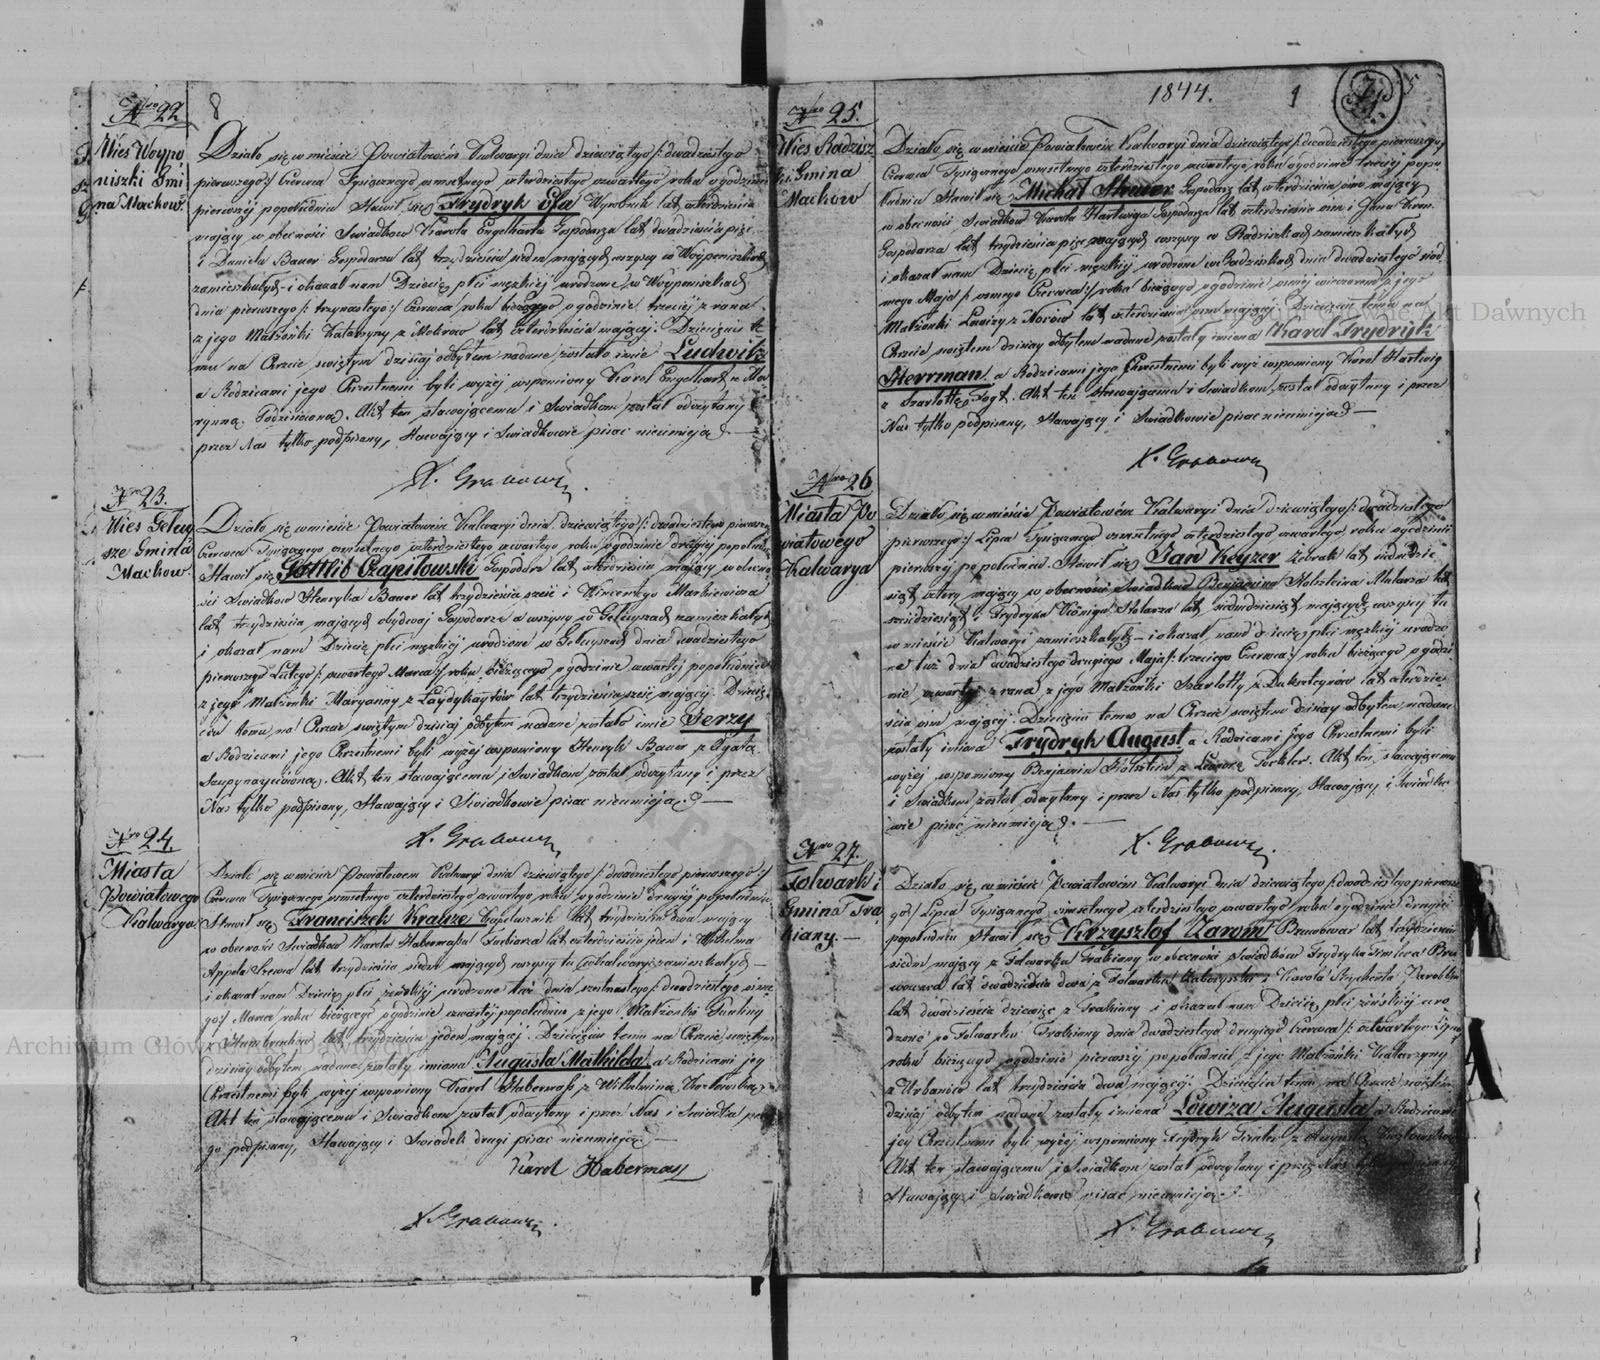 Nro 22
8
Wieś Woypo
niszki Gmi
na Mackow.
Działo się w mieście Powiatowém Kalwaryi dnia dziewiątego /: dwudziestego
pierwszego :/ Czerwca Tysiącznego osmsetnego czterdziestego czwartego roku o godzinie
pierwszéj popołudniu Stawił się Frydryk Wyrobnik lat czterdzieście
mający w obecności Swiadków Karola Engelharta Gospodarza lat dwadzieścia pięć
i Daniela Bauer Gospodarza lat trzydzieście siedm mających wszyscy w Woyponiszkach
zamieszkałych i okazał nam Dziecię płci męzkiéj urodzone w Woyponiszkach
dnia pierwszego /: trzynastego :/ Czerwca roku bieżącego o godzinie trzeciéj z rana
z jego Małżonki Katarzyny z lat czterdzieście mającéj. Dziecięciu te
mu na Chrzcie swiętym dzisiaj odbytem nadane zostało imie Ludwik
a Rodzicami jego Chrzestnemi byli wyżéj wspomniony Karol Engelhart z Ma
ryanną. Akt ten stawającemu i Swiadkom został odczytany
przez Nas tylko podpisany, Stawający i Swiadkowie pisać nieumieją.
X. Grabow
Nro 23.
Wieś Geley
sze Gmina
Mackow
Działo się w mieście Powiatowém Kalwaryi dnia dziewiątego /: dwudziestego pierwszego
Czerwca Tysiącznego osmsetnego czterdziestego czwartego roku o godzinie drugiéj popołudniu
Stawił się Gottlib Czapiłowski Gospodarz lat czterdzieście mający w obecno
ści Swiadków Henryka Bauer lat trzydzieścia sześć i Wincentego Markiewicza
lat trzydzieścia mających obydwaj Gospodarze a wszyscy w zamieszkałych
i okazał nam Dziecię płci męzkiéj urodzone w dnia dwudziestego
pierwszego Lutego /: czwartego Marca :/ roku bieżącego o godzinie czwartéj popołudniu
z jego Małżonki Maryanny z lat trzydzieścia sześć mającéj. Dziecię
ciu temu na Chrzcie swiętym dzisiaj odbytem nadane zostało imie Jerzy
a Rodzicami jego Chrzestnemi byli wyżéj wspomniony Henryk Bauer z Agatą
Akt ten stawającemu i Swiadkom został odczytany i przez
Nas tylko podpisany, Stawający i Swiadkowie pisać nieumieją.
X. Grabow
Nro 24.
Miasta
Powiatowego
Kalwarya
Działo się w mieście Powiatowém Kalwaryi dnia dziewiątego /: dwudziestego pierwszego :/
Czerwca Tysiącznego osmsetnego czterdziestego czwartego roku o godzinie drugiéj popołudniu
Stawił się Franciszek Krauze Kapelusznik lat trzydzieście dwa mający
w obecności Swiadków Karola Habermassa Farbiarza lat czterdzieście jeden i Wilhelma
Appela Szewca lat trzydzieścia siedm mających wszyscy tu w Kalwaryi zamieszkałych
i okazał nam Dziecię płci żeńskiéj urodzone tuż dnia szesnastego /: dwudziestego osme
go :/ Marca roku bieżącego o godzinie czwartéj popołudniu z jego Małżonki Pauliny
z lat trzydzieście jeden mającéj. Dziecięciu temu na Chrzcie swiętym
dzisiaj odbytem nadane zostały imiona Augusta Mathilda a Rodzicami jej
Chrzestnemi byli wyżéj wspomniony Karol Habermass z Wilhelminą
Akt ten stawającemu i Swiadkom został odczytany i przez Nas i Swiadka pierwsze
go podpisany, Stawający i Swiadek drugi pisać nieumieją
Karol Habermass
X. Grabow
1844.
Nro 25.
Wieś Radzisz
Gmina
Mackow
Działo się w mieście Powiatowém Kalwaryi dnia dziewiątego /: dwudziestego pierwszego :/
Czerwca Tysiącznego osmsetnego czterdziestego czwartego roku o godzinie trzeciéj popo
łudniu Stawił się Michał Gospodarz lat czterdzieścia osm mający
w obecności Swiadków Karola Hartwiga Gospodarza lat czterdzieście osm i Jana
Gospodarza lat trzydzieścia pięć mających wszyscy w Radziszkach zamieszkałych
i okazał nam Dziecię płci męzkiéj urodzone w Radziszkach dnia dwudziestego siód
mego Maja /: osmego Czerwca :/ roku bieżącego o godzinie osméj wieczorem z jego
Małżonki Luwizy z lat czterdzieście osm mającéj. Dziecięciu temu na
Chrzcie swiętem dzisiaj odbytem nadane zostały imiona Karol Frydryk
Herrman a Rodzicami jego Chrzestnemi byli wyż wspomniony Karol Hartwig
z Szarlottą. Akt ten Stawającemu i Swiadkom został odczytany i przez
Nas tylko podpisany, Stawający i Swiadkowie pisać nieumieją.
X. Grabow
Nro 26
Miasta Po
wiatowego
Kalwarya
Działo się w mieście Powiatowém Kalwaryi dnia dziewiątego /: dwudziestego
pierwszego :/ Lipca Tysiącznego osmsetnego czterdziestego czwartego roku o godzinie
pierwszéj po południu Stawił się Jan Keyzer Żebrak lat siedmdzie
siąt cztery mający w obecności Swiadków Benjamina Holszteina Malarza lat
szcśdziesiąt i Frydryka Königa Stolarza lat siedmdziesiąt mających wszyscy tu
w mieście Kalwaryi zamieszkałych i okazał nam dziecię płci męzkiéj urodzo
ne tuż dnia dwudziestego drugiego Maja /: trzeciego Czerwca :/ roku bieżącego o godzi
nie czwartéj z rana, z jego Małżonki Szarlotty z lat czterdzie
ścia osm mającéj. Dziecięciu temu na Chrzcie swiętem dzisiaj odbytem nadane
zostały imiona Frydryk August a Rodzicami jego Chrzestnemi byli
wyżéj wspomniony Benjamin Holsztein z. Akt ten stawającemu
i Swiadkom został odczytany i przez Nas tylko podpisany, Stawający i Swiadko
wie pisać nieumieją.
X. Grabow
Nro 27.
Folwark i
Gmina Tra
kiany.
Działo się w mieście Powiatowém Kalwaryi dnia dziewiątego /: dwudziestego pierwsze
go :/ Lipca Tysiącznego osmsetnego czterdziestego czwartego roku o godzinie drugiéj
popołudniu Stawił się Krzysztof Browowar lat trzydzieście
siedm mający z Folwarku Trakiany w obecności Swiadków Frydryka Bro
wowara lat dwadzieścia dwa z Folwarku i Karola Parobka
lat dwadzieścia dziewięć z Trakiany i okazał nam Dziecię płci żeńskiéj uro
dzone w Folwarku Trakiany dnia dwudziestego drugiego Czerwca /: czwartego Lipca
roku bieżącego o godzinie pierwszéj popołudniu z jego Małżonki Katarzyny
z Urbanów lat trzydzieście dwa mającéj. Dziecięciu temu na Chrzcie swiętem
dzisiaj odbytem nadane zostały imiona Lowiza Augusta a Rodzicami
jéj Chrzestnemi byli wyżéj wspomniony Frydryk z
Akt ten stawającemu i Swiadkom został odczytany i przez Nas
Stawający i Swiadkowie pisać nieumieją.
X. Grabow
Archiwum Główne Akt Dawnych
Archiwum Główne Akt Dawnych